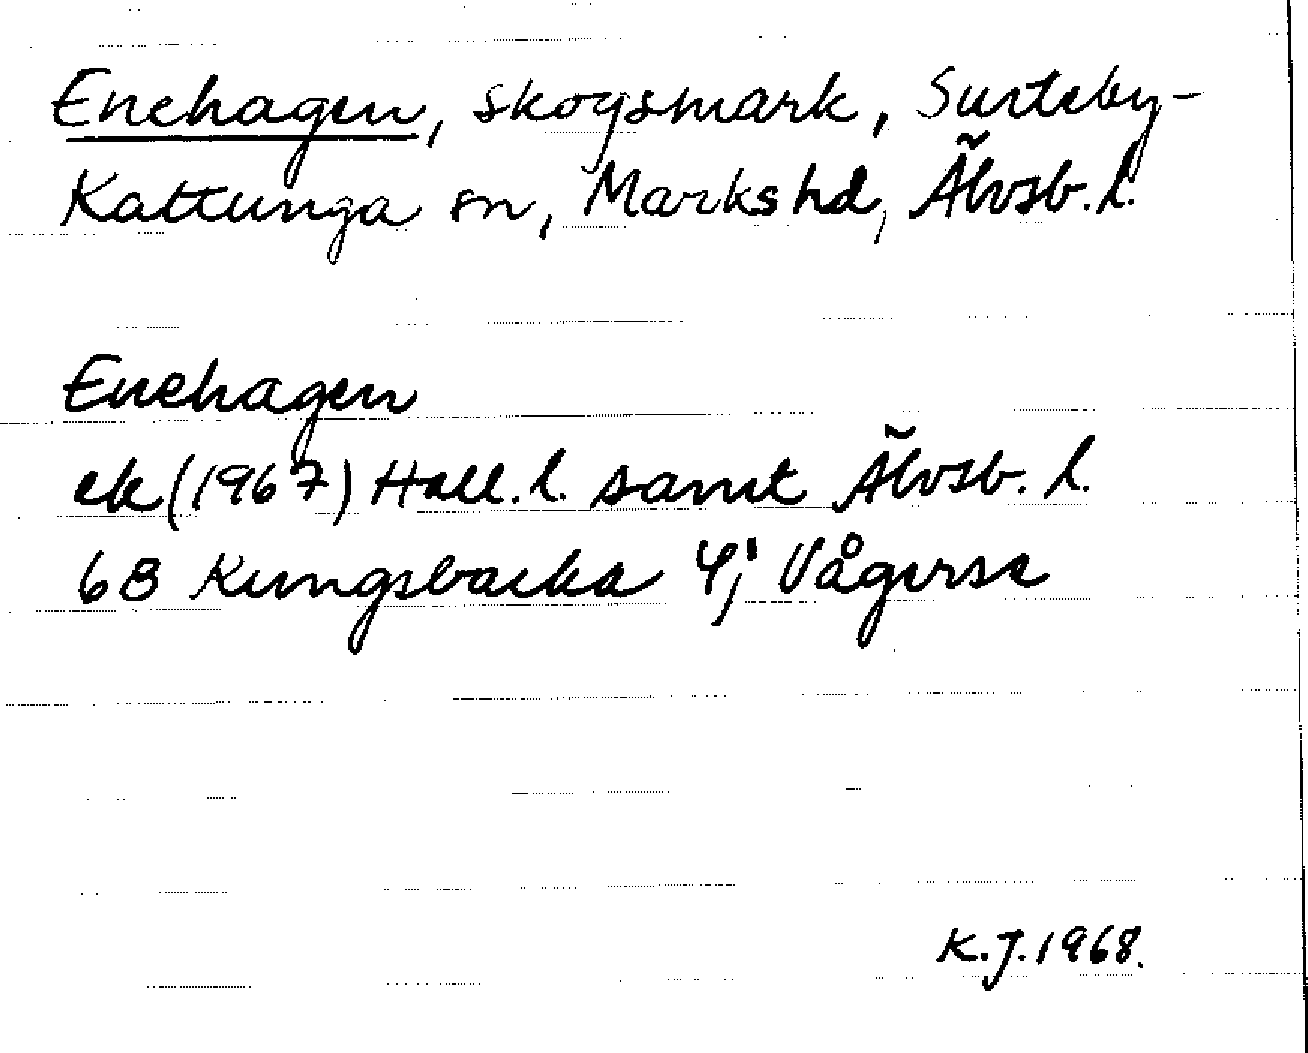 Enehagen, skogsmark, Surteby-
Kattunga sn, Marks hd, Älvsb. l.
Enehagen
ek (1967) Hall. l. samt Älvsb. l.
6B Kungsbacka 4j Vågerse
K.J. 1968.